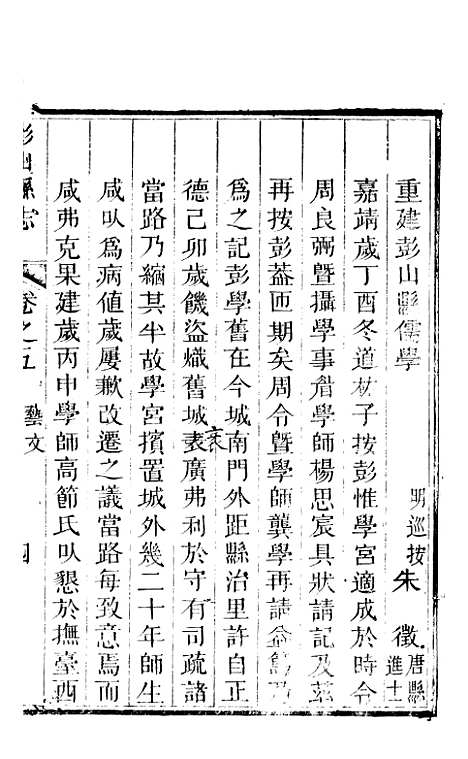 重建彭山縣儒學 明巡按朱徵唐縣進士
嘉靖歲丁酉冬道林子按彭惟學宮適成於時令
周良弼曁攝學事眉學師楊思宸具狀請記及茲
再按彭葢匝期矣周令曁學師龔學再請益篤乃
爲之記彭學舊在今城南門外距縣治里許自正
德己卯歲饑盜熾舊城袤廣弗利於守有司疏諸
當路乃縮其半故學宮擯置城外幾二十年師生
咸㕥爲病値歲屢歉改遷之議當路每致意焉而
咸弗克果建歲丙申學師高節氏㕥懇於撫臺西
彭山縣志 卷之五 藝文 四